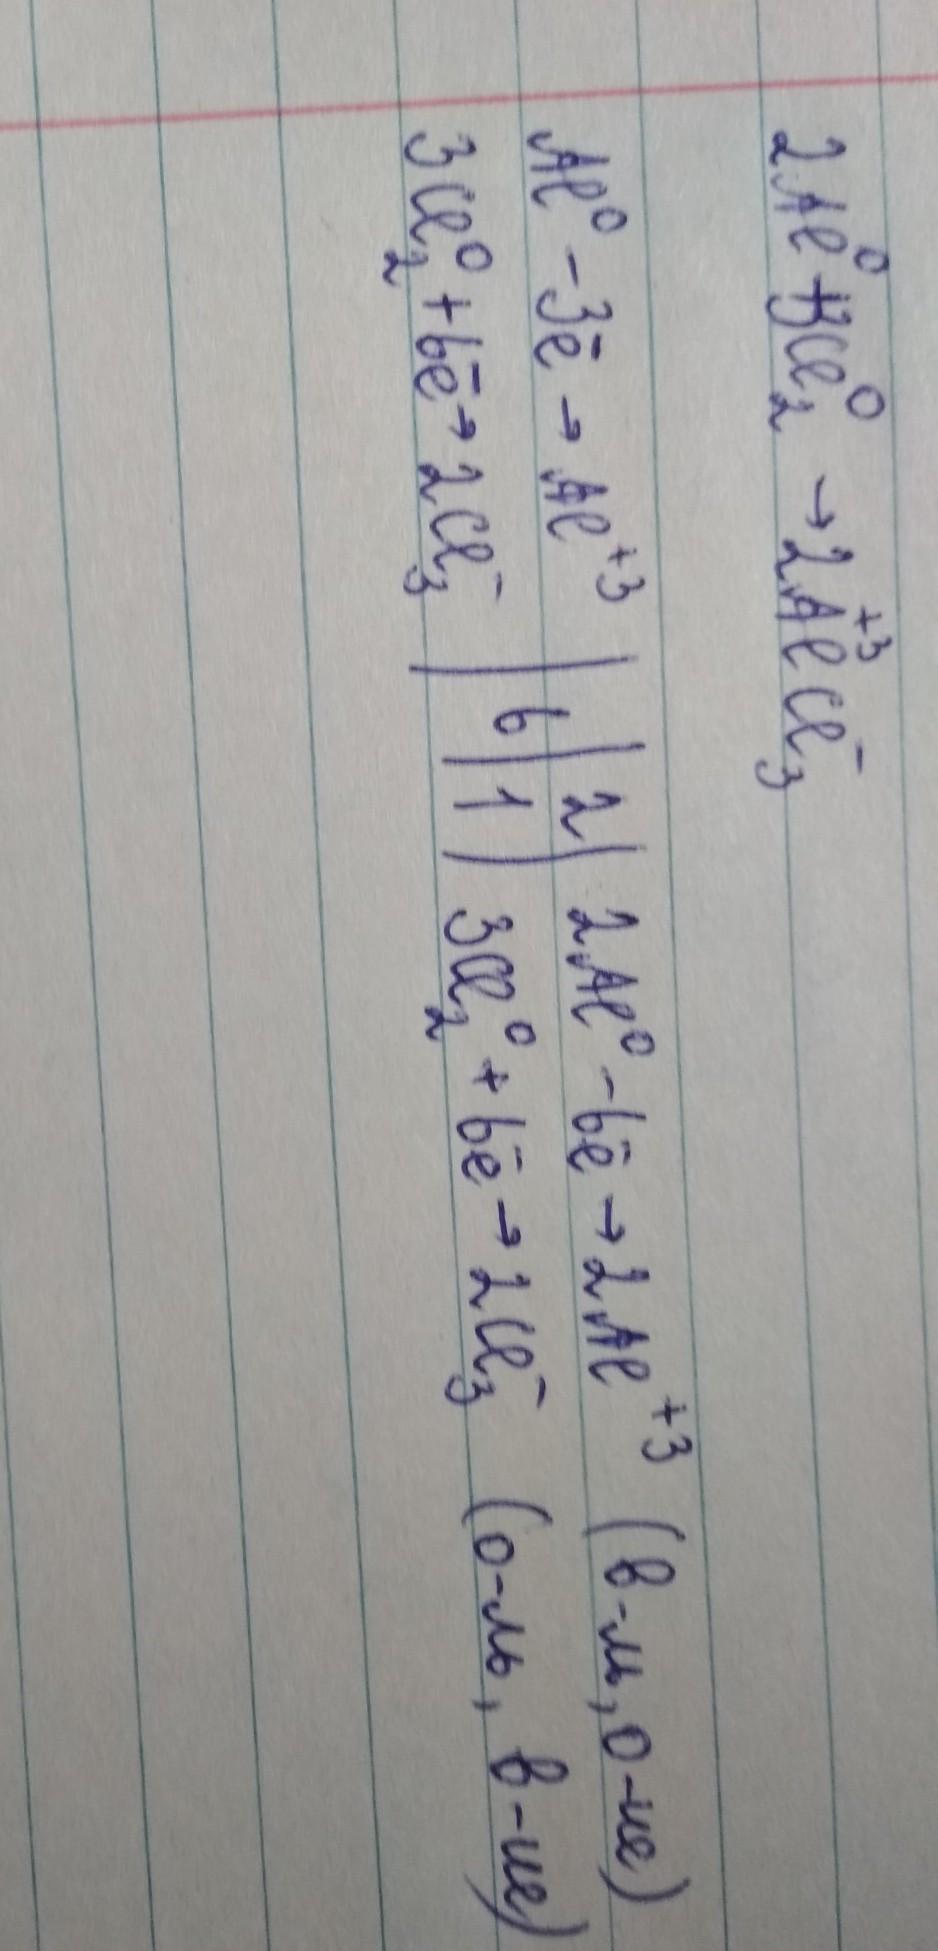 2Al⁰ + 3Cl₂⁰ → 2Al⁺³Cl₃⁻
Al⁰ - 3ē → Al⁺³ | 6 | 2 | 2Al⁰ - 6ē → 2Al⁺³ (в-ль, о-ие)
3Cl₂⁰ + 6ē → 2Cl₃⁻ | 6 | 1 | 3Cl₂⁰ + 6ē → 2Cl₃⁻ (о-ль, в-ие)